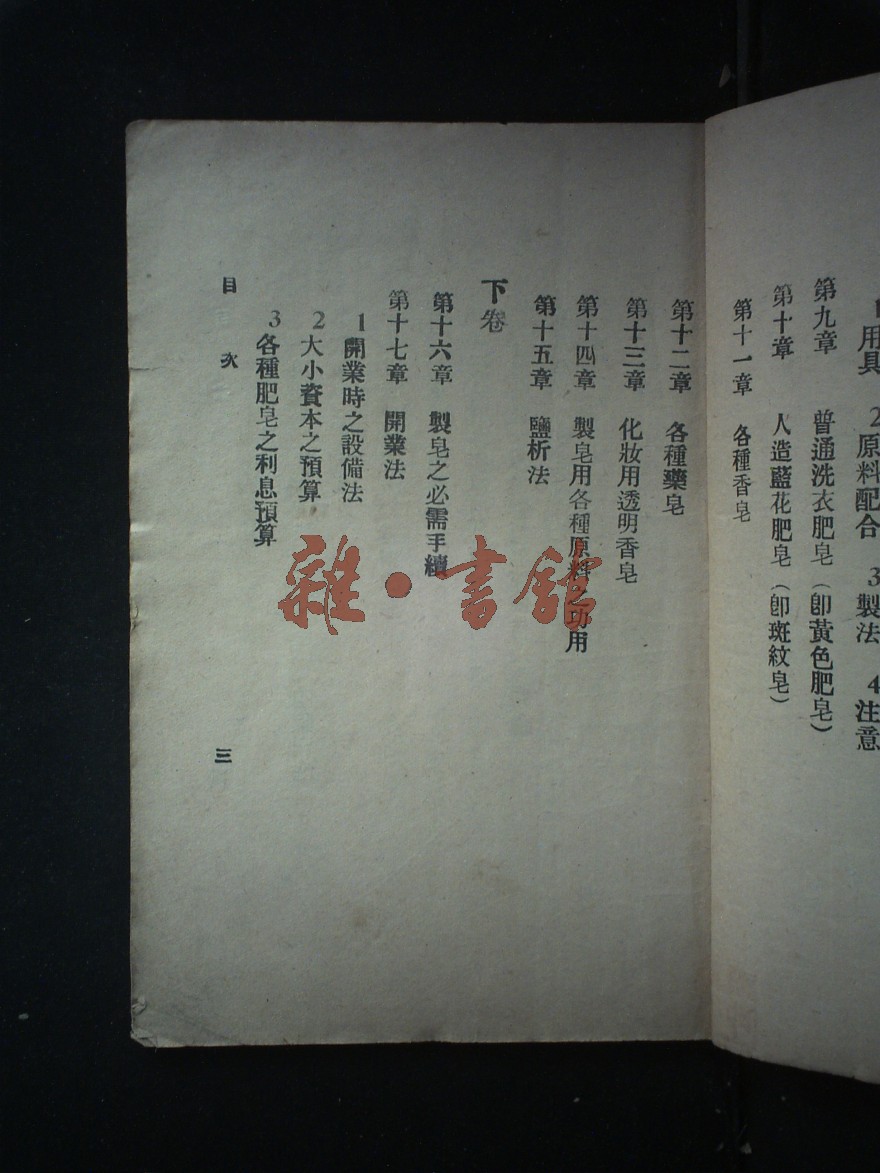 1 用具　2 原料配合　3 製法　4 注意
第九章　普通洗衣肥皂（卽黃色肥皂）
第十章　人造藍花肥皂（卽斑紋皂）
第十一章　各種香皂
第十二章　各種藥皂
第十三章　化妝用透明香皂
第十四章　製皂用各種原料之功用
第十五章　鹽析法
下卷
第十六章　製皂之必需手續
第十七章　開業法
1 開業時之設備法
2 大小資本之預算
3 各種肥皂之利息預算
目次　三
雜·書館